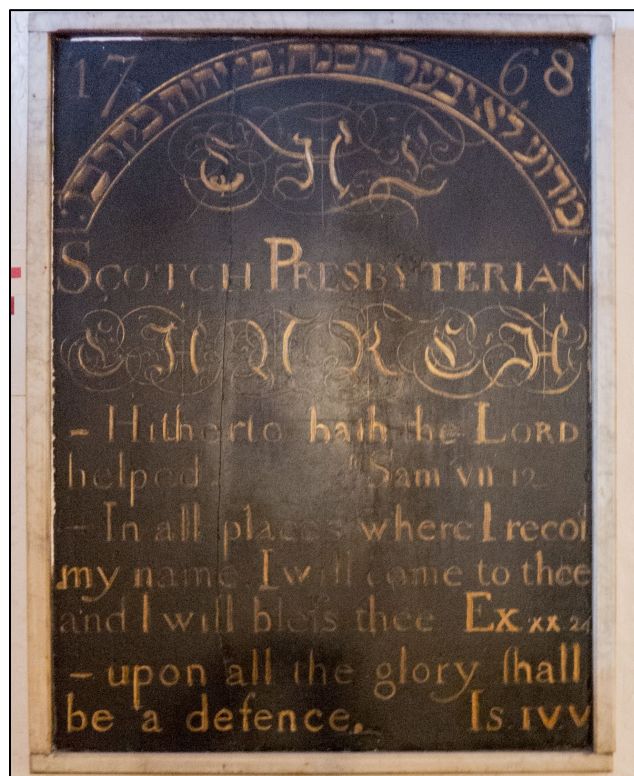 17 68
מדוע לא יבער הסנה: כי יהוה בקרבו:
THE
SCOTCH PRESBYTERIAN
CHURCH
- Hitherto hath the LORD
helped. Sam VII 12
- In all places where I recor
my name I will come to thee
and I will bleſs thee Ex xx 24
- upon all the glory ſhall
be a defence. Is. IV V